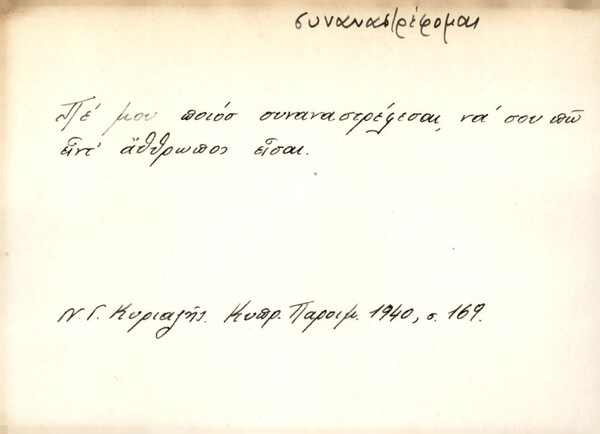 συναναστρέφομαι
Πέ μου ποιόσ συναναστρέφεσαι, νά σου πῶ
εἶντ' ἄθθρωπος εἶσαι.
Ν. Γ. Κυριαζῆς. Κυπρ. Παροιμ. 1940, σ. 169.